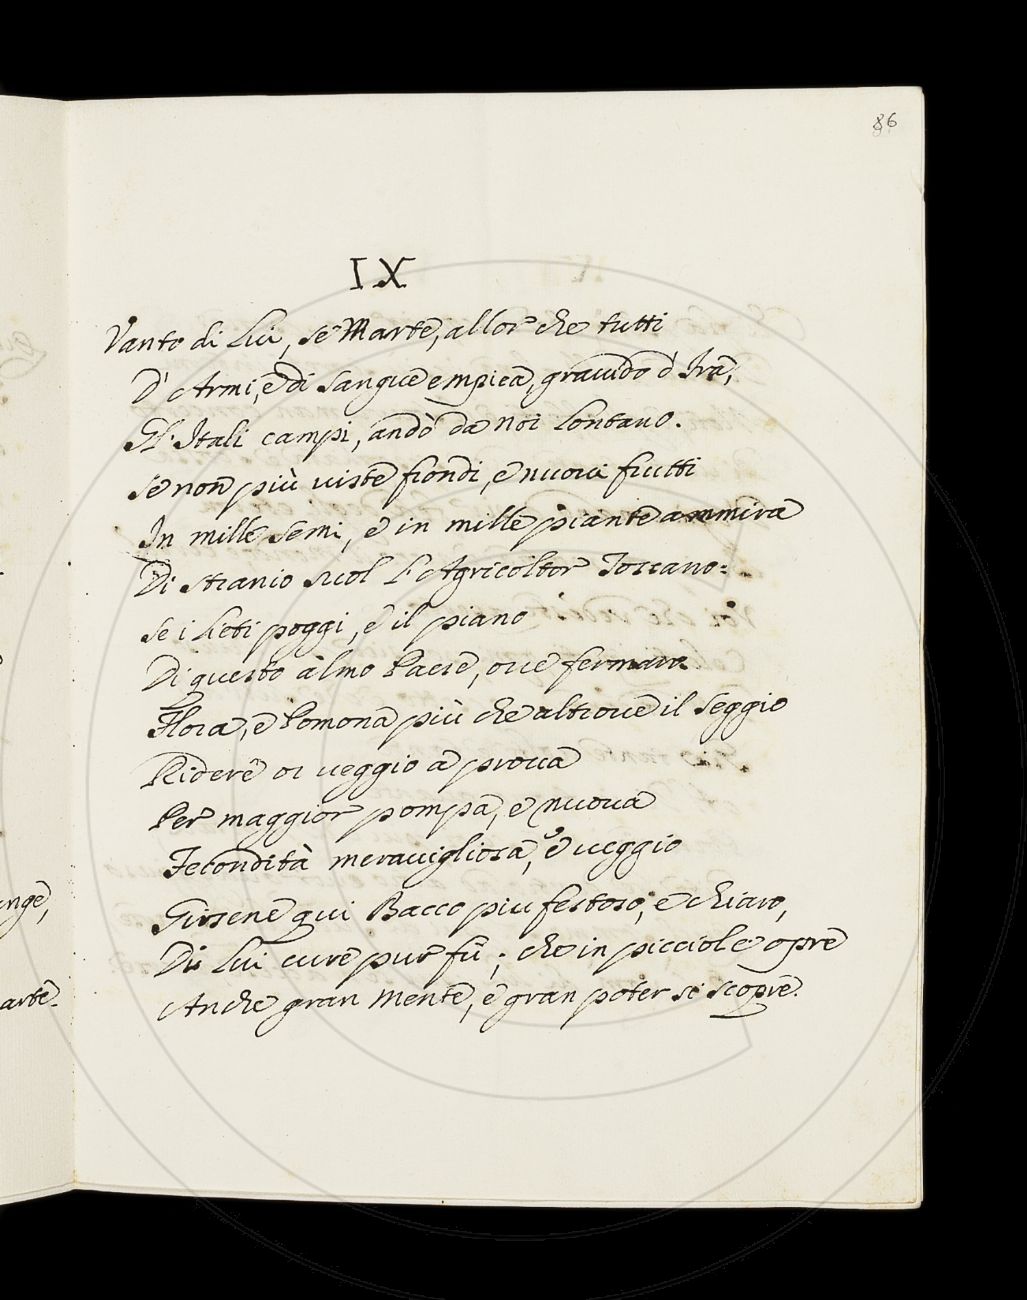 86
IX
Vanto di Lui, se Marte, allor che tutti
D'Armi, e di sangue empiea, gravido d'Ira,
Gl'Itali campi, andò da noi lontano.
Se non più viste frondi, e nuovi frutti
In mille semi, e in mille piante ammira
Di stranio suol L'Agricoltor Toscano:
Se i lieti poggi, e il piano
Di questo almo Paese, ove fermaro
Flora, e Pomona più che altrove il seggio
Ridere or veggio a prova
Per maggior pompa, e nuova
Fecondità meravigliosa, e veggio
Girsene qui Bacco piu festoso, e chiaro,
Di Lui cure pur fu; che in picciole opre
Anche gran mente, e gran poter si scopre.
ange,
arte.